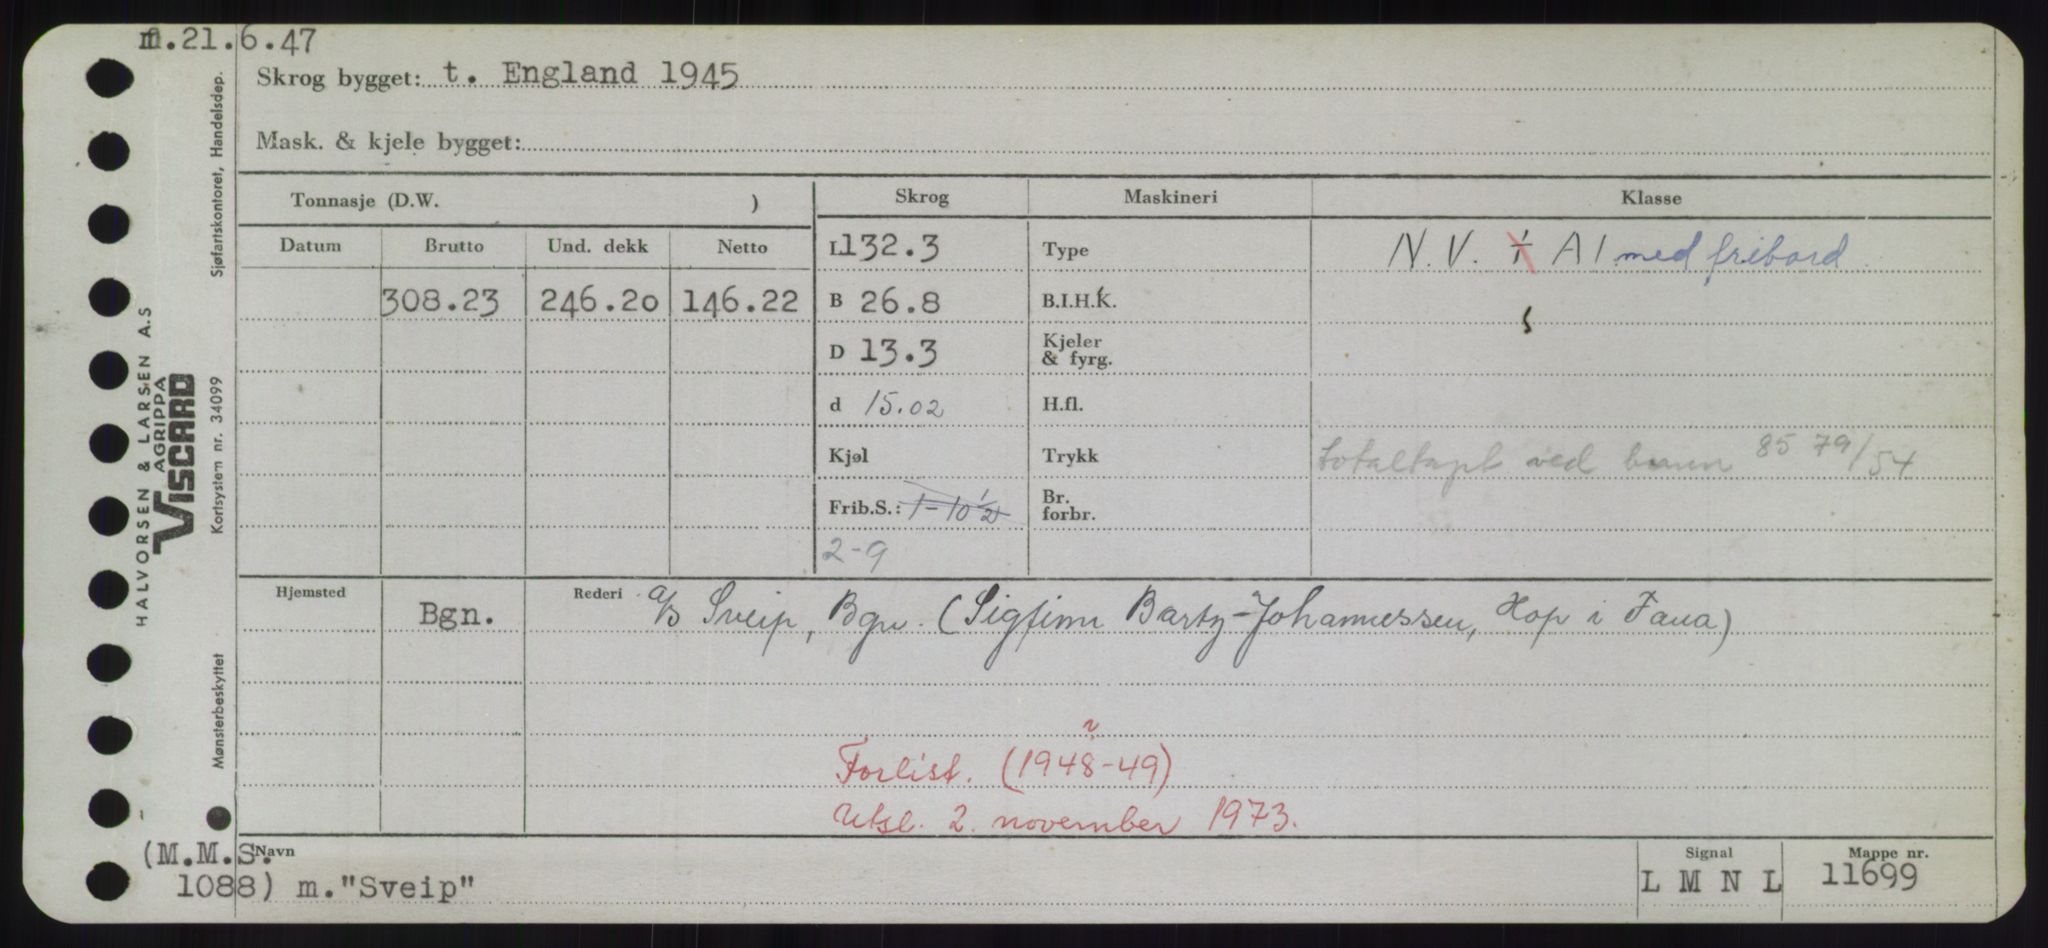 m.21.6.47
Skrog bygget: t. England 1945
Mask. & kjele bygget:
Tonnasje (D.W. )
Skrog
Maskineri
Klasse
Datum Brutto Und. dekk Netto
308.23 246.20 146.22
L 132.3
B 26.8
D 13.3
d 15.02
Kjøl
Frib.S.: 1-10½
2-9
Type
B.I.H.K.
Kjeler
& fyrg.
H.fl.
Trykk
Br.
forbr.
N.V. A1 med fribord
s
totaltapt ved 85 79/54
Hjemsted Bgn. Rederi a/s Sveip, Bgn. (Sigfinn Bartz-Johannessen, Hop i Fana)
Forlist. (1948-49)
Utsl. 2. november 1973.
(M.M.S. Navn
1088) m."Sveip"
Signal
L M N L
Mappe nr.
11699
Sjøfartskontoret, Handelsdep.
HALVORSEN & LARSEN A.S
AGRIPPA
VISCARD
Kortsystem nr. 34099
Mønsterbeskyttet